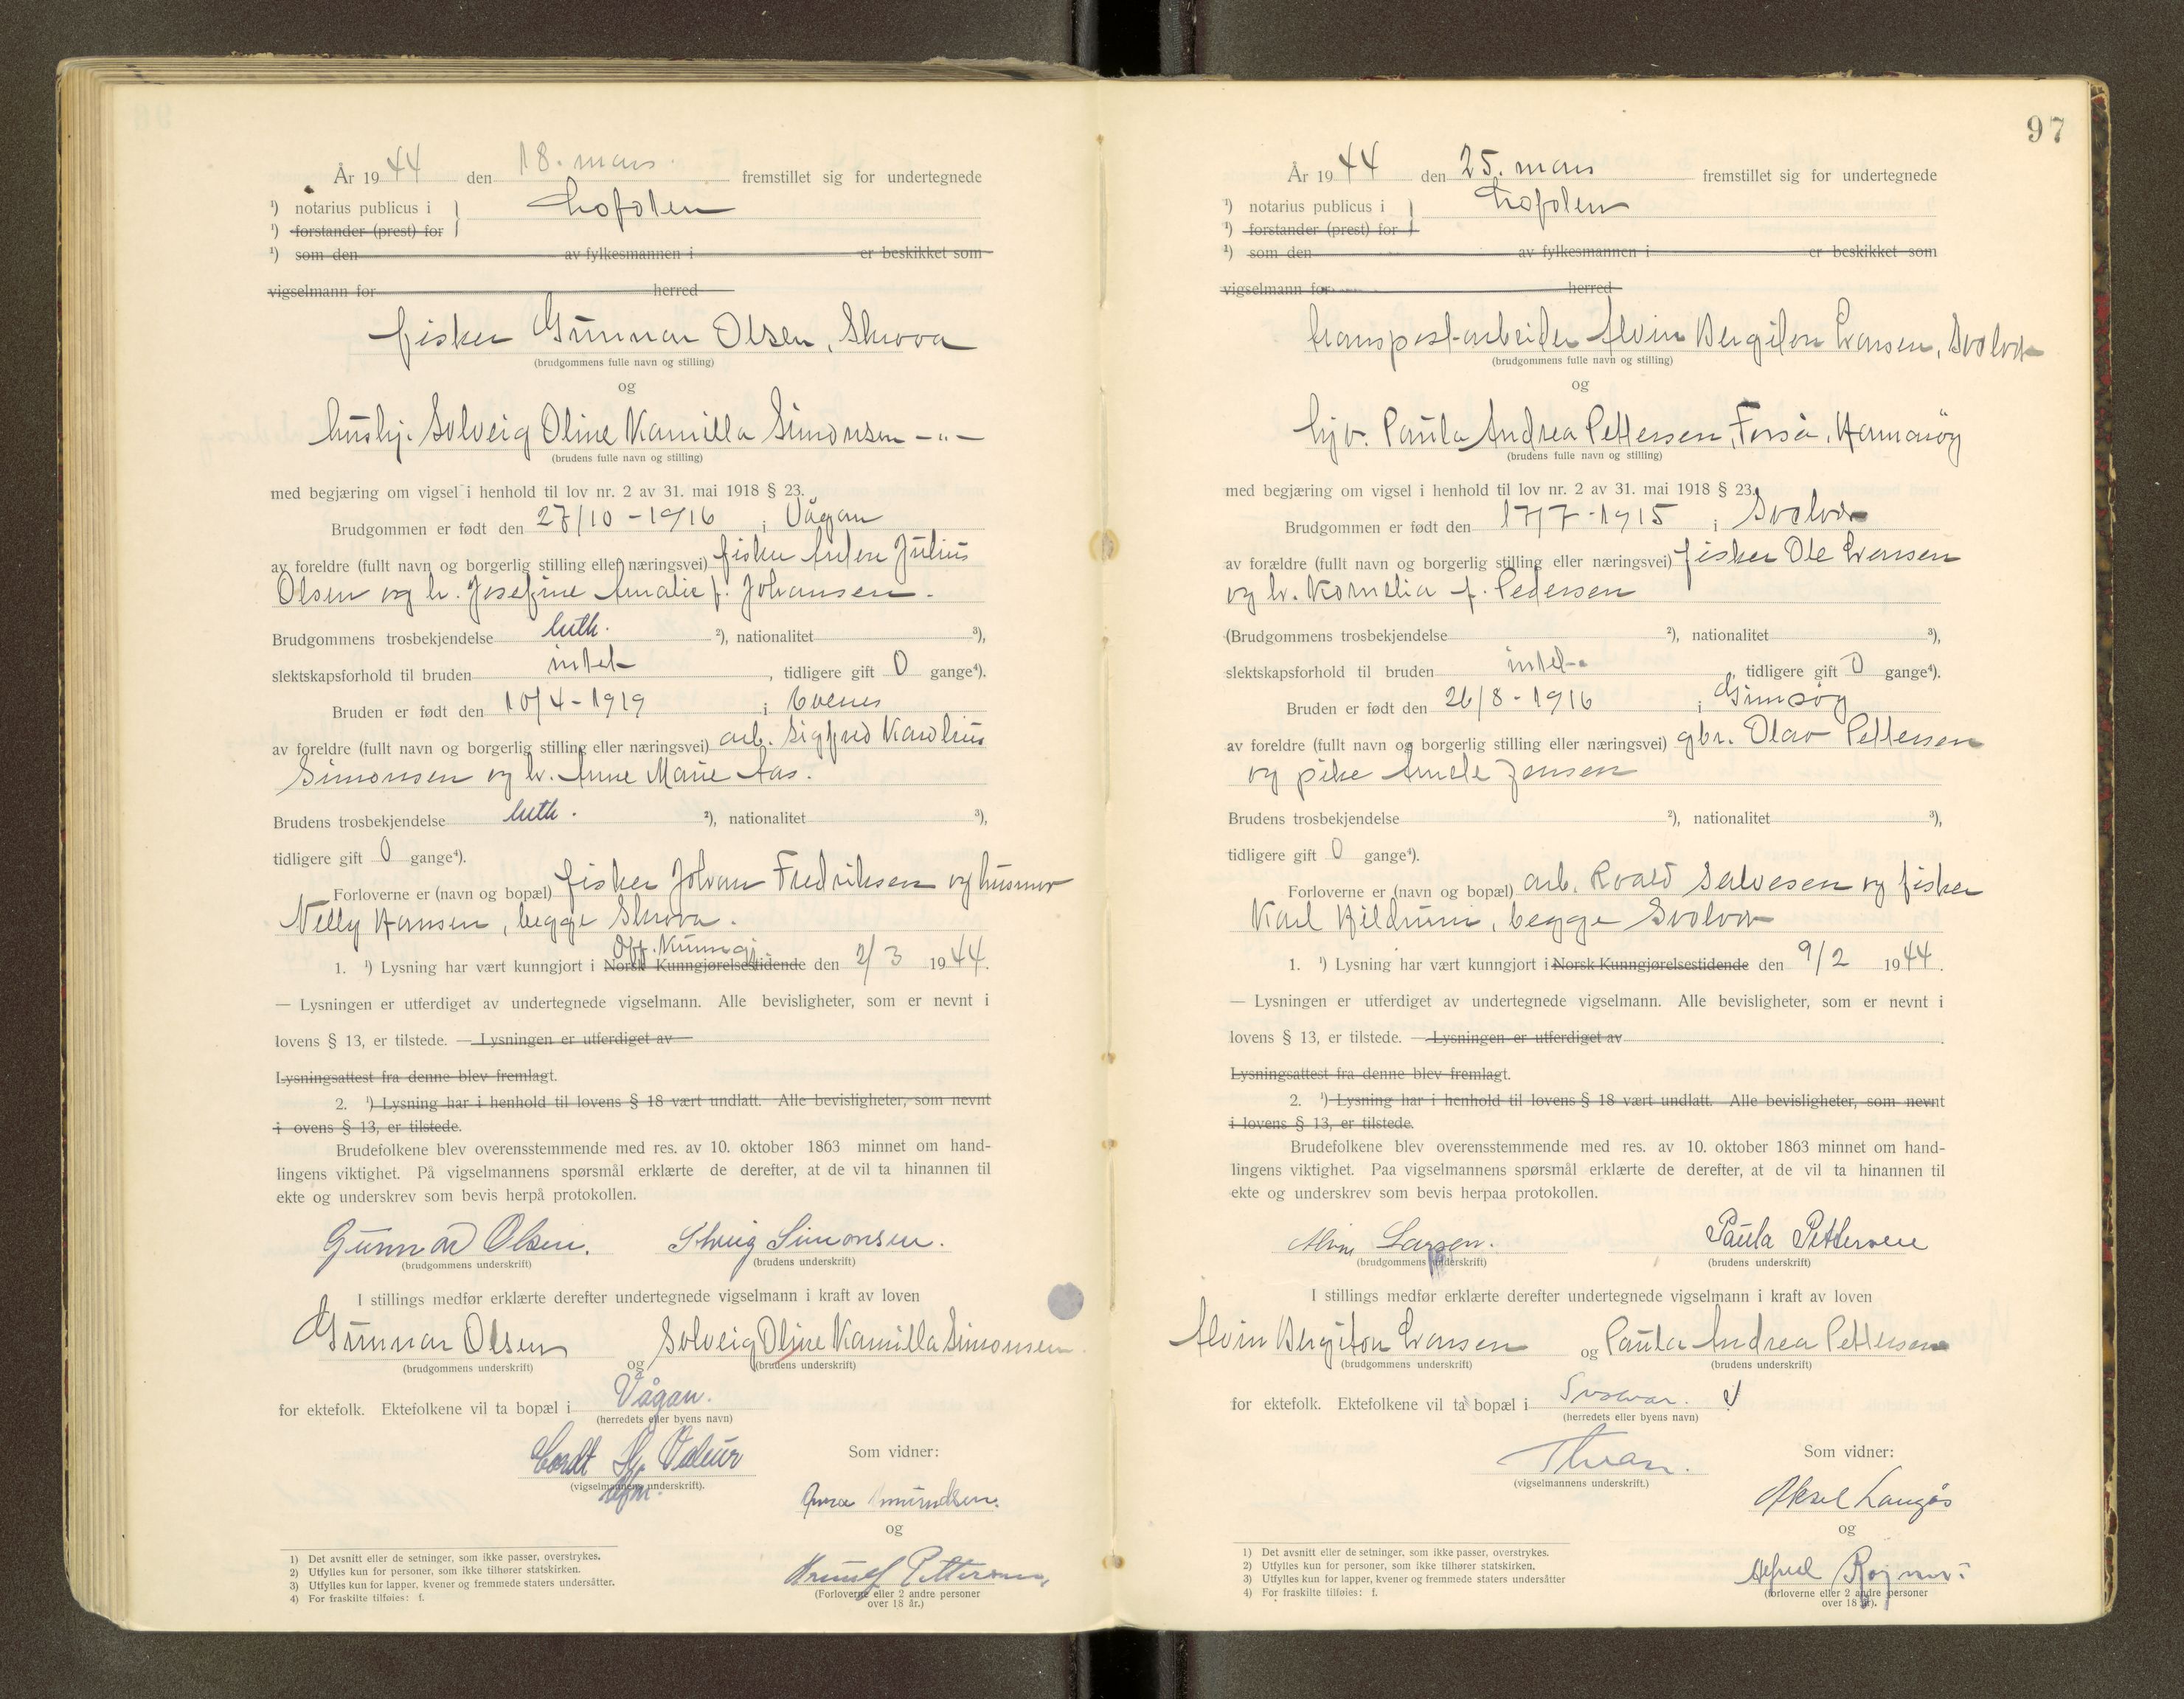 År 1944 den 18. mars. fremstillet sig for undertegnede
¹) notarius publicus i } Lofoten
¹) forstander (prest) for
¹) som den av fylkesmannen i er beskikket som
vigselmann for herred
fisker Gunnar Olsen, Skrova
(brudgommens fulle navn og stilling)
og
hushj. Solveig Oline Kamilla Simonsen -"-
(brudens fulle navn og stilling)
med begjæring om vigsel i henhold til lov nr. 2 av 31. mai 1918 § 23.
Brudgommen er født den 27/10 - 1916 i Vågan
av foreldre (fullt navn og borgerlig stilling eller næringsvei) fisker Julius
Olsen og h. Josefine Amalie f. Johansen.
Brudgommens trosbekjendelse luth. ²), nationalitet ³),
slektskapsforhold til bruden intet, tidligere gift 0 gange⁴).
Bruden er født den 10/4 - 1919 i Evenes
av foreldre (fullt navn og borgerlig stilling eller næringsvei) arb. Sigfred Karolius
Simonsen og h. Anne Marie Aas.
Brudens trosbekjendelse luth. ²), nationalitet ³),
tidligere gift 0 gange⁴).
Forloverne er (navn og bopæl) fisker Johan Fredriksen og husmor
Nelly Hansen, begge Skrova.
Off. Kunngj.
1. ¹) Lysning har vært kunngjort i Norsk Kunngjørelsestidende den 2/3 1944.
— Lysningen er utferdiget av undertegnede vigselmann. Alle bevisligheter, som er nevnt i
lovens § 13, er tilstede. — Lysningen er utferdiget av
Lysningsattest fra denne blev fremlagt.
2. ¹) Lysning har i henhold til lovens § 18 vært undlatt. Alle bevisligheter, som nevnt
i ovens § 13, er tilstede.
Brudefolkene blev overensstemmende med res. av 10. oktober 1863 minnet om hand-
lingens viktighet. På vigselmannens spørsmål erklærte de derefter, at de vil ta hinannen til
ekte og underskrev som bevis herpå protokollen.
Gunnar Olsen. Solveig Simonsen.
(brudgommens underskrift) (brudens underskrift)
I stillings medfør erklærte derefter undertegnede vigselmann i kraft av loven
Gunnar Olsen og Solveig Oline Kamilla Simonsen
(brudgommens underskrift) (brudens underskrift)
for ektefolk. Ektefolkene vil ta bopæl i Vågan.
(herredets eller byens navn)
Som vidner:
(vigselmannens underskrift).
og
Pettersen
(Forloverne eller 2 andre personer
over 18 år.)
1) Det avsnitt eller de setninger, som ikke passer, overstrykes.
2) Utfylles kun for personer, som ikke tilhører statskirken.
3) Utfylles kun for lapper, kvener og fremmede staters undersåtter.
4) For fraskilte tilføies: f.
97
År 1944 den 25. mars fremstillet sig for undertegnede
¹) notarius publicus i } Lofoten
¹) forstander (prest) for
¹) som den av fylkesmannen i er beskikket som
vigselmann for herred
transportarbeider Alvin Bergiton Larsen, Svolvær
(brudgommens fulle navn og stilling)
og
hjv. Paula Andrea Pettersen, Forså, Hamarøy
(brudens fulle navn og stilling)
med begjæring om vigsel i henhold til lov nr. 2 av 31. mai 1918 § 23.
Brudgommen er født den 17/7 - 1915 i Svolvær
av forældre (fullt navn og borgerlig stilling eller næringsvei) fisker Ole Larsen
og h. Kornelia f. Pedersen
(Brudgommens trosbekjendelse ²), nationalitet ³),
slektskapsforhold til bruden intet, tidligere gift 0 gange⁴).
Bruden er født den 26/8 - 1916 i Gimsøy
av foreldre (fullt navn og borgerlig stilling eller næringsvei) gbr. Olav Pettersen
og pike Jensen
Brudens trosbekjendelse ²), nationalitet ³),
tidligere gift 0 gange⁴).
Forloverne er (navn og bopæl) arb. Roald Salvesen og fisker
Karl Hildrum, begge Svolvær
1. ¹) Lysning har vært kunngjort i Norsk Kunngjørelsestidende den 9/2 1944.
— Lysningen er utferdiget av undertegnede vigselmann. Alle bevisligheter, som er nevnt i
lovens § 13, er tilstede. — Lysningen er utferdiget av
Lysningsattest fra denne blev fremlagt.
2. ¹) Lysning har i henhold til lovens § 18 vært undlatt. Alle bevisligheter, som nevnt
i lovens § 13, er tilstede.
Brudefolkene blev overensstemmende med res. av 10. oktober 1863 minnet om hand-
lingens viktighet. Paa vigselmannens spørsmål erklærte de derefter, at de vil ta hinannen til
ekte og underskrev som bevis herpaa protokollen.
Alvin Larsen. Paula Pettersen
(brudgommens underskrift) (brudens underskrift)
I stillings medfør erklærte derefter undertegnede vigselmann i kraft av loven
Alvin Bergiton Larsen og Paula Andrea Pettersen
(brudgommens underskrift) (brudens underskrift)
for ektefolk. Ektefolkene vil ta bopæl i Svolvær.
(herredets eller byens navn)
Som vidner:
(vigselmannens underskrift.)
Aksel Langås
og
(forloverne eller 2 andre personer
over 18 år).
1) Det avsnitt eller de setninger, som ikke passer, overstrykes.
2) Utfylles kun for personer, som ikke tilhører statskirken.
3) Utfylles kun for lapper, kvener og fremmede staters undersåtter
4) For fraskilte tilføies: f.